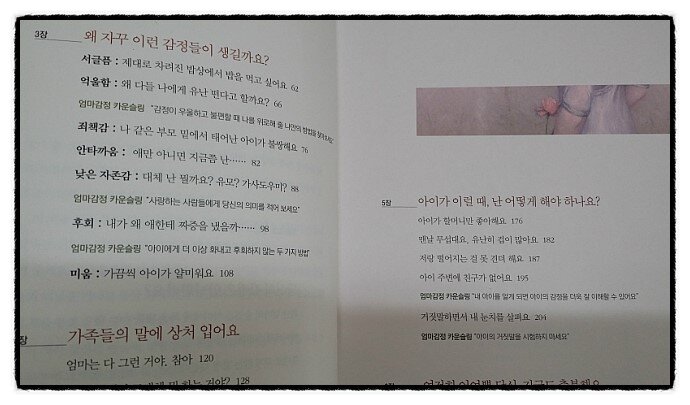 3장 왜 자꾸 이런 감정들이 생길까요?
서글픔 : 제대로 차려진 밥상에서 밥을 먹고 싶어요 62
억울함 : 왜 다들 나에게 유난 떤다고 할까요? 66
엄마감정 카운슬링 "감정이 우울하고 불편할 때 나를 위로해 줄 나만의 방법을 찾아보세요"
죄책감 : 나 같은 부모 밑에서 태어난 아이가 불쌍해요 76
안타까움 : 애만 아니면 지금쯤 난…… 82
낮은 자존감 : 대체 난 뭘까요? 유모? 가사도우미? 88
엄마감정 카운슬링 "사랑하는 사람들에게 당신의 의미를 적어 보세요"
후회 : 내가 왜 애한테 짜증을 냈을까…… 98
엄마감정 카운슬링 "아이에게 더 이상 화내고 후회하지 않는 두 가지 방법"
미움 : 가끔씩 아이가 얄미워요 108
장 가족들의 말에 상처 입어요
엄마는 다 그런 거야, 참아 120
하는 거야? 128
5장 아이가 이럴 때, 난 어떻게 해야 하나요?
아이가 할머니만 좋아해요 176
맨날 무섭대요, 유난히 겁이 많아요 182
저랑 떨어지는 걸 못 견뎌 해요 187
아이 주변에 친구가 없어요 195
엄마감정 카운슬링 "내 아이를 알게 되면 아이의 감정을 더욱 잘 이해할 수 있어요"
거짓말하면서 내 눈치를 살펴요 204
엄마감정 카운슬링 "아이의 거짓말을 시험하지 마세요"